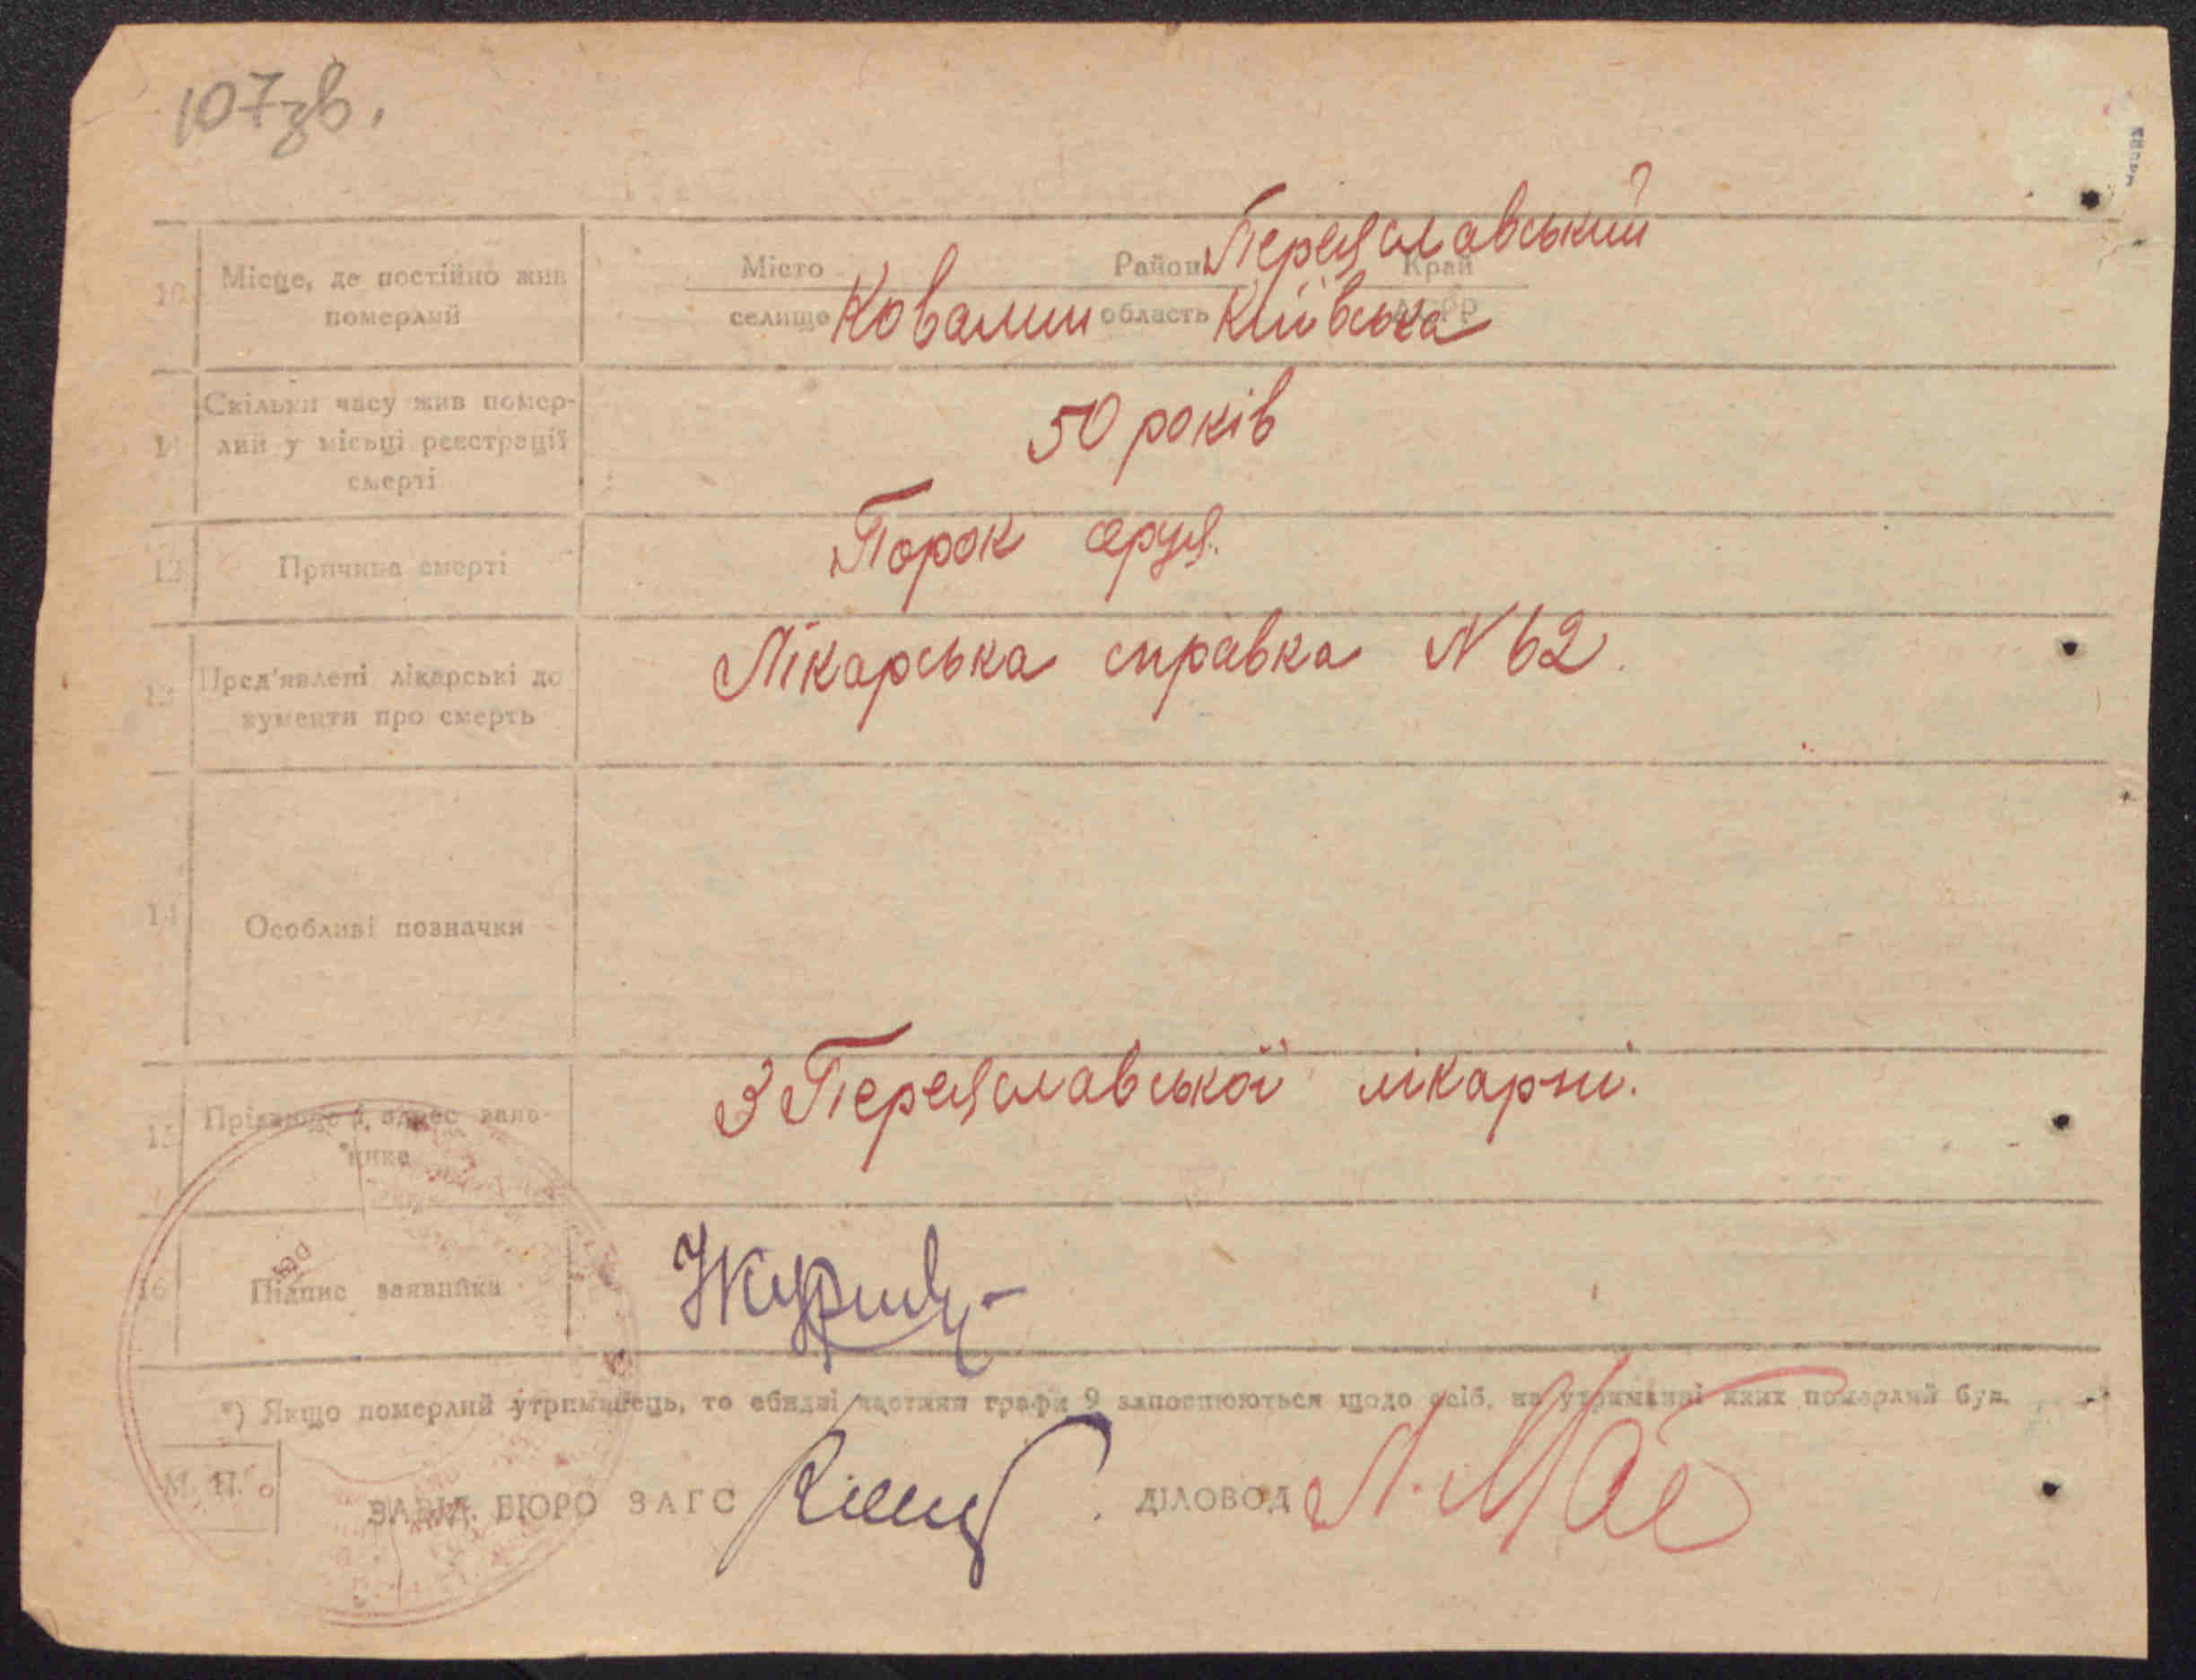 107зв.
10 Місце, де постійно жив померлий
Місто селище Ковалин Район область Переяславський Київська Край АСРР
11 Скільки часу жив помер-
лий у місці реєстрації
смерті
50 років
12 Причина смерті Порок серця.
13 Пред'явлені лікарські до
кументи про смерть
Лікарська справка N 62.
14 Особливі позначки
15 Прізвище й адрес заяв-
ника
З Переяславської лікарні.
16 Підпис заявника
*) Якщо померлий утриманець, то обидві частини графи 9 заповнюються щодо осіб, на утриманні яких померлий був.
М. П.
ЗАВІД. БЮРО ЗАГС ДІЛОВОД